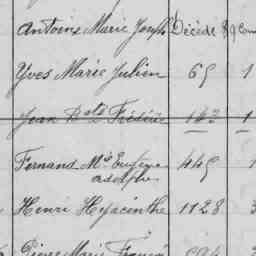 Antoine Marie Joseph Décédé
Yves Marie Julien 69 1
Jean Bte Frédéric 143 1
Fernand Mie Eugène 449 1
adolphe
Henri Hyacinthe 1128 3
Pierre Marie François